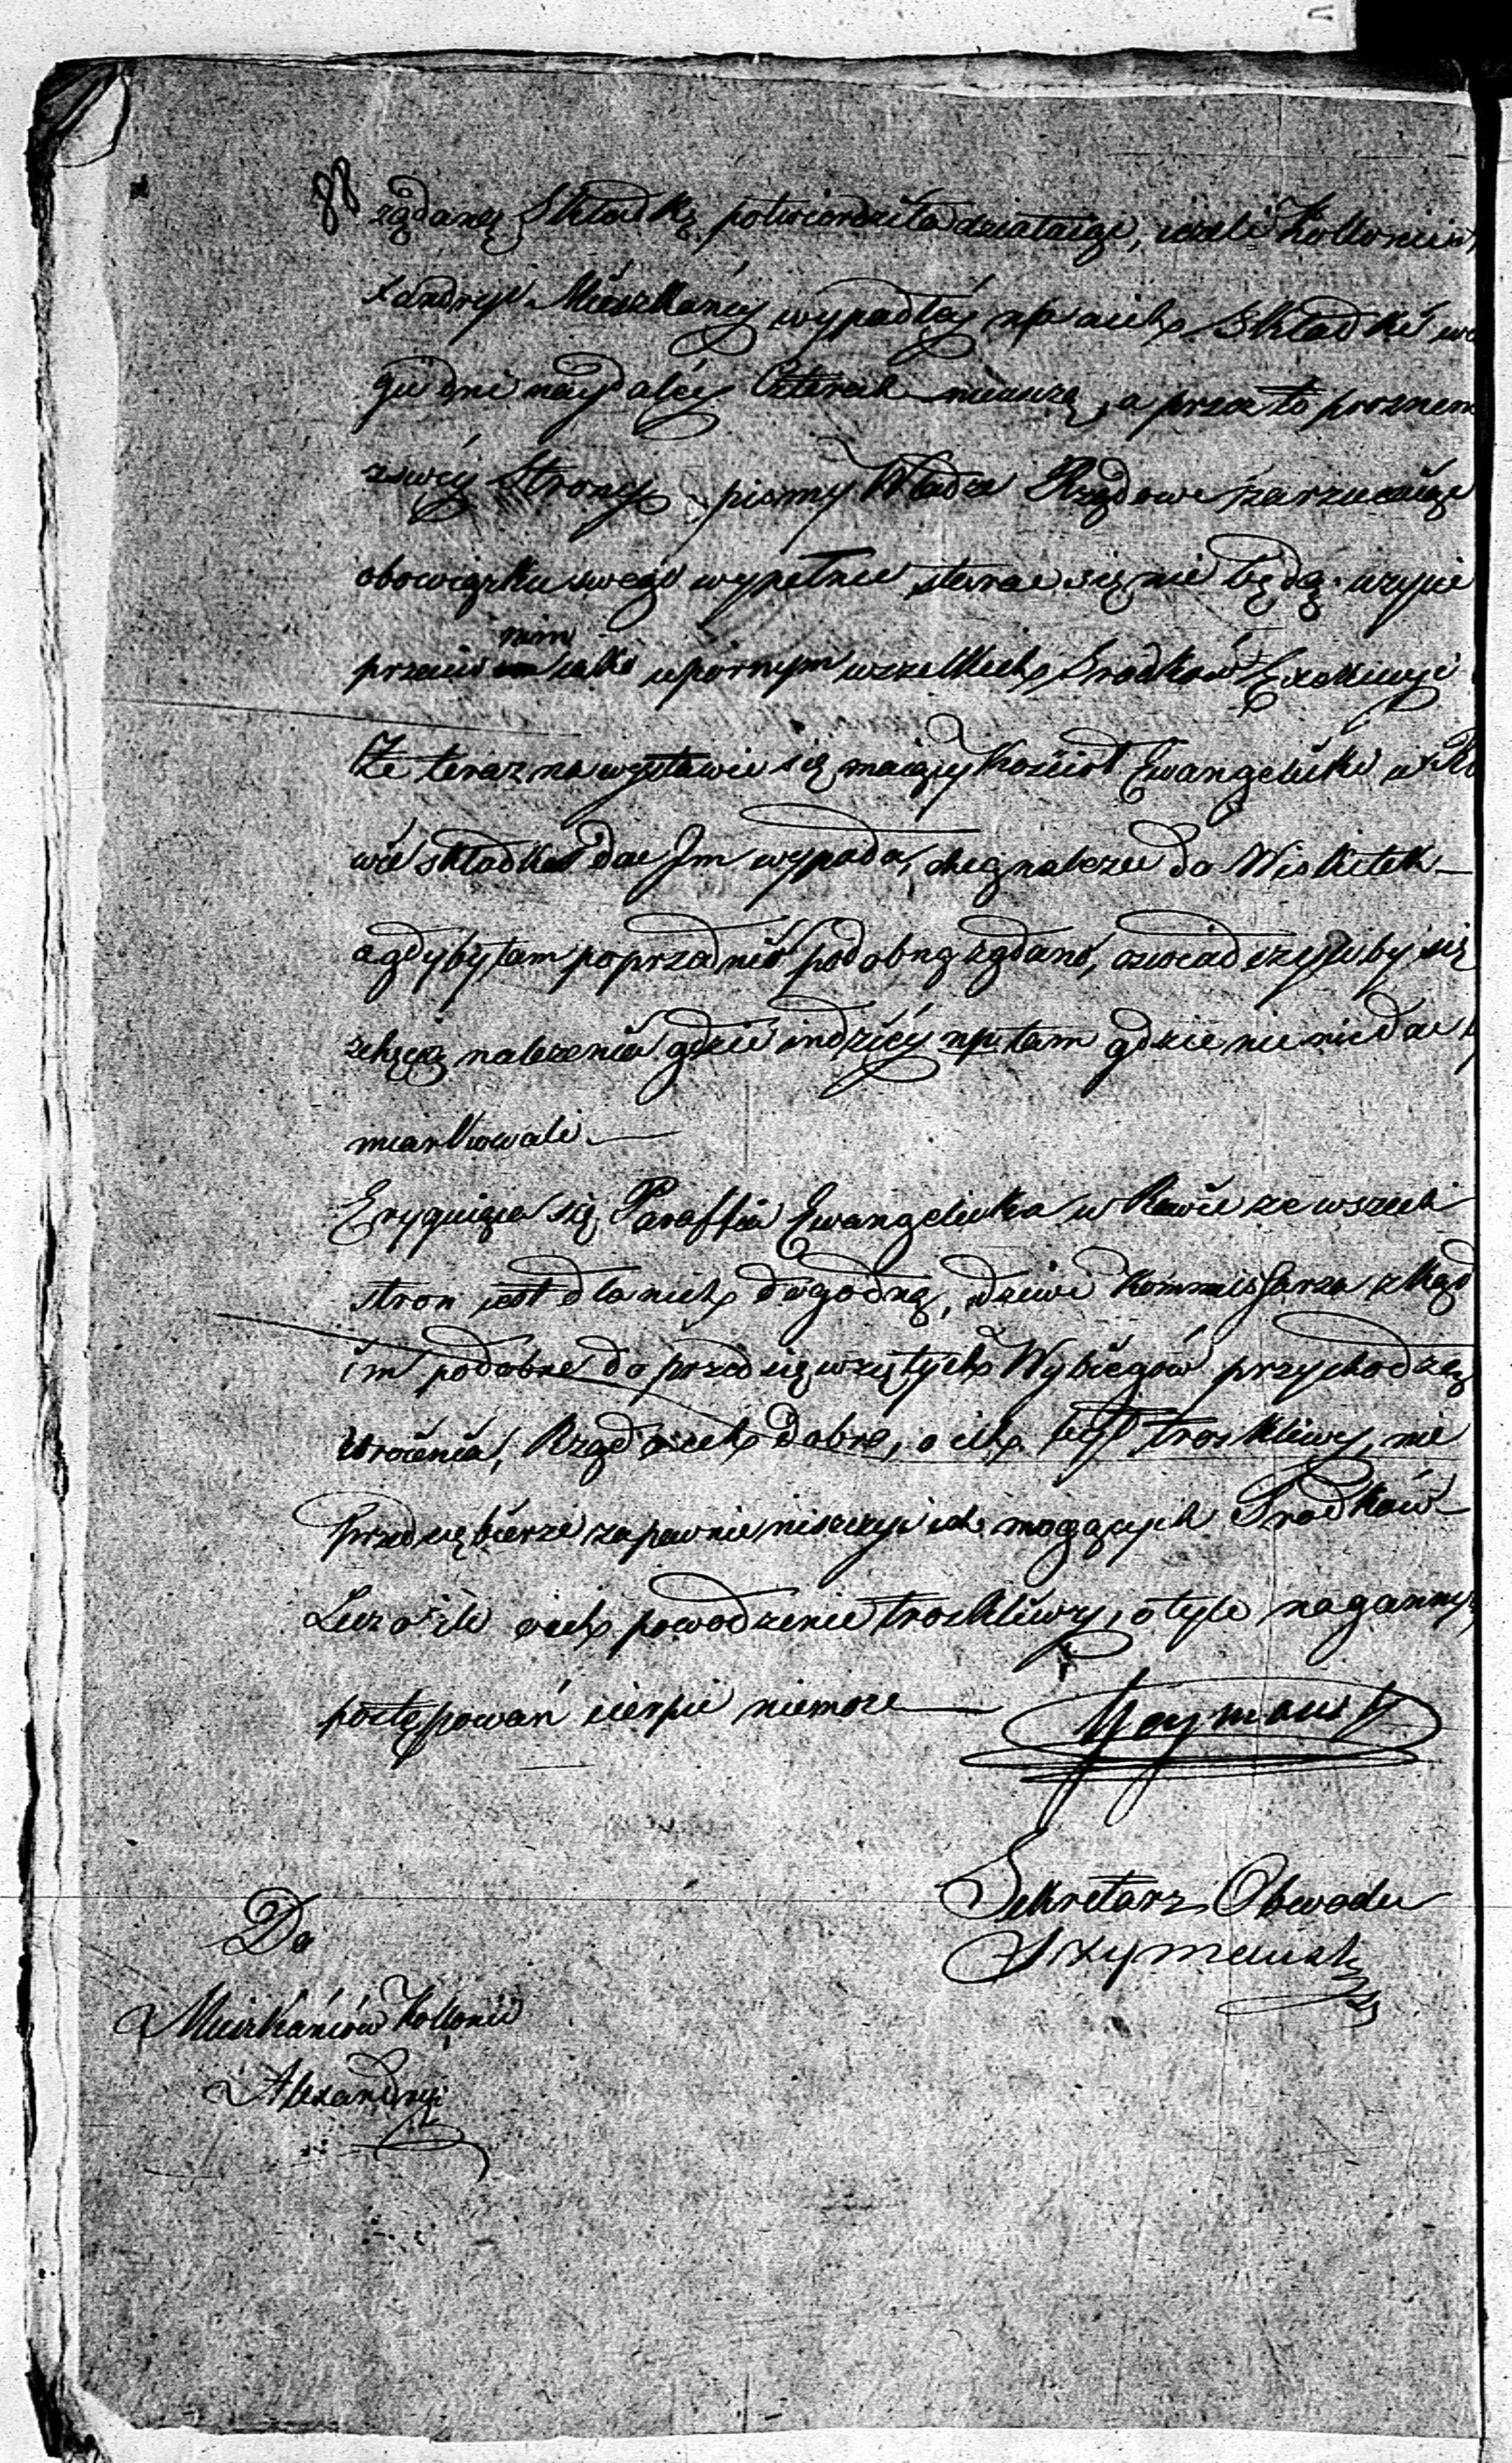 88
żądaną Składkę, potwierdziła działając, ieżeli Kollonii
xandryi Mieszkańcy wypadłej na nich Składki
gu dni naydaléy Czterech nieuiszczą, a przez to
z swéy Strony pismy Władze Rządowe zarzucaiąc
obowiązku swego wypełnić starać się nie będą. użyie
przeciw nim iako upornym wszelkich Srodków Exekucyi
Ze teraz na wystawić się maiący Kościoł Ewangelicki w Ra
wie składka dać Im wypada, chcą należeć do Wiskitek —
a gdyby tam poprzednio podobną żądano, oswiadczyliby się
z chęcią należenia gdzie indziéy np. tam gdzie nic niedać
miarkowali —
Erygująca się Paraffia Ewangelicka w Rawie ze wszech
stron iest dla nich dogodną, dziwi Kommissarza zkąd
im podobne do przedsięwziętych Wybiegów przychodzą
Rząd o ich dobro, o ile iest troskliwy, nie
przedsiębierze zapewnie niszczyć ich mogących Srodków
Lecz o ile o ich powodzenie troskliwy, o tyle nagannych
postępowań cierpieć niemoże —
Sekretarz Obwodu
Szymański
Do
Mieszkańców Kollonii
Alexandryi